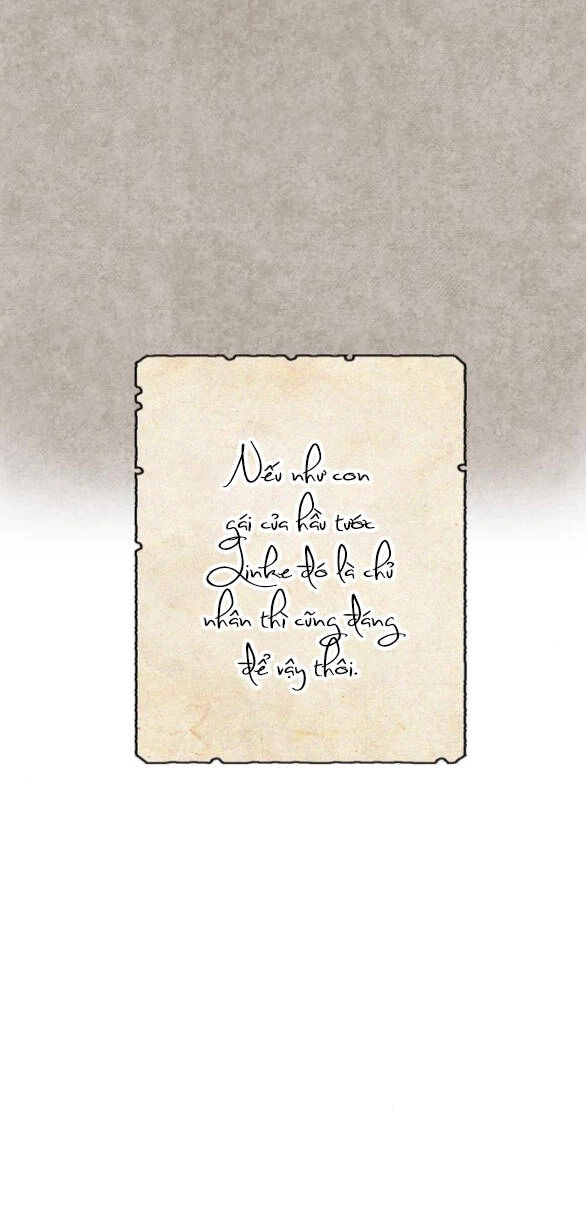 Nếu như con
gái của hầu tước
Linke đó là chủ
nhân thì cũng đáng
để vậy thôi.